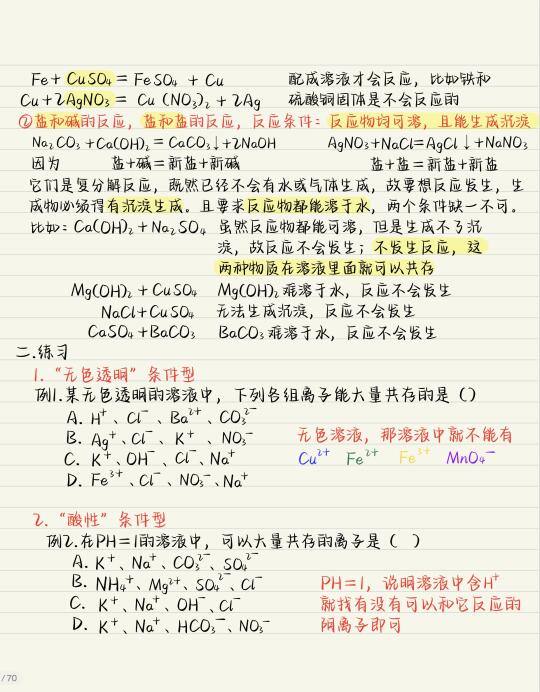 Fe+CuSO₄=FeSO₄+Cu 配成溶液才会反应，比如铁和
Cu+2AgNO₃=Cu(NO₃)₂+2Ag 硫酸铜固体是不会反应的
②盐和碱的反应，盐和盐的反应，反应条件：反应物均可溶，且能生成沉淀
Na₂CO₃+Ca(OH)₂=CaCO₃↓+2NaOH AgNO₃+NaCl=AgCl↓+NaNO₃
因为 盐+碱=新盐+新碱 盐+盐=新盐+新盐
它们是复分解反应，既然已经不会有水或气体生成，故要想反应发生，生
成物必须得有沉淀生成。且要求反应物都能溶于水，两个条件缺一不可。
比如：Ca(OH)₂+Na₂SO₄ 虽然反应物都能可溶，但是生成不了沉
淀，故反应不会发生；不发生反应，这
两种物质在溶液里面就可以共存
Mg(OH)₂+CuSO₄ Mg(OH)₂难溶于水，反应不会发生
NaCl+CuSO₄ 无法生成沉淀，反应不会发生
CaSO₄+BaCO₃ BaCO₃难溶于水，反应不会发生
二.练习
1.“无色透明”条件型
例1.某无色透明的溶液中，下列各组离子能大量共存的是（）
A. H⁺、Cl⁻、Ba²⁺、CO₃²⁻
B. Ag⁺、Cl⁻、K⁺、NO₃⁻ 无色溶液，那溶液中就不能有
C. K⁺、OH⁻、Cl⁻、Na⁺ Cu²⁺ Fe²⁺ Fe³⁺ MnO₄⁻
D. Fe³⁺、Cl⁻、NO₃⁻、Na⁺
2.“酸性”条件型
例2.在PH=1的溶液中，可以大量共存的离子是（ ）
A. K⁺、Na⁺、CO₃²⁻、SO₄²⁻
B. NH₄⁺、Mg²⁺、SO₄²⁻、Cl⁻ PH=1，说明溶液中含H⁺
C. K⁺、Na⁺、OH⁻、Cl⁻ 就找有没有可以和它反应的
D. K⁺、Na⁺、HCO₃⁻、NO₃⁻ 阴离子即可
/70